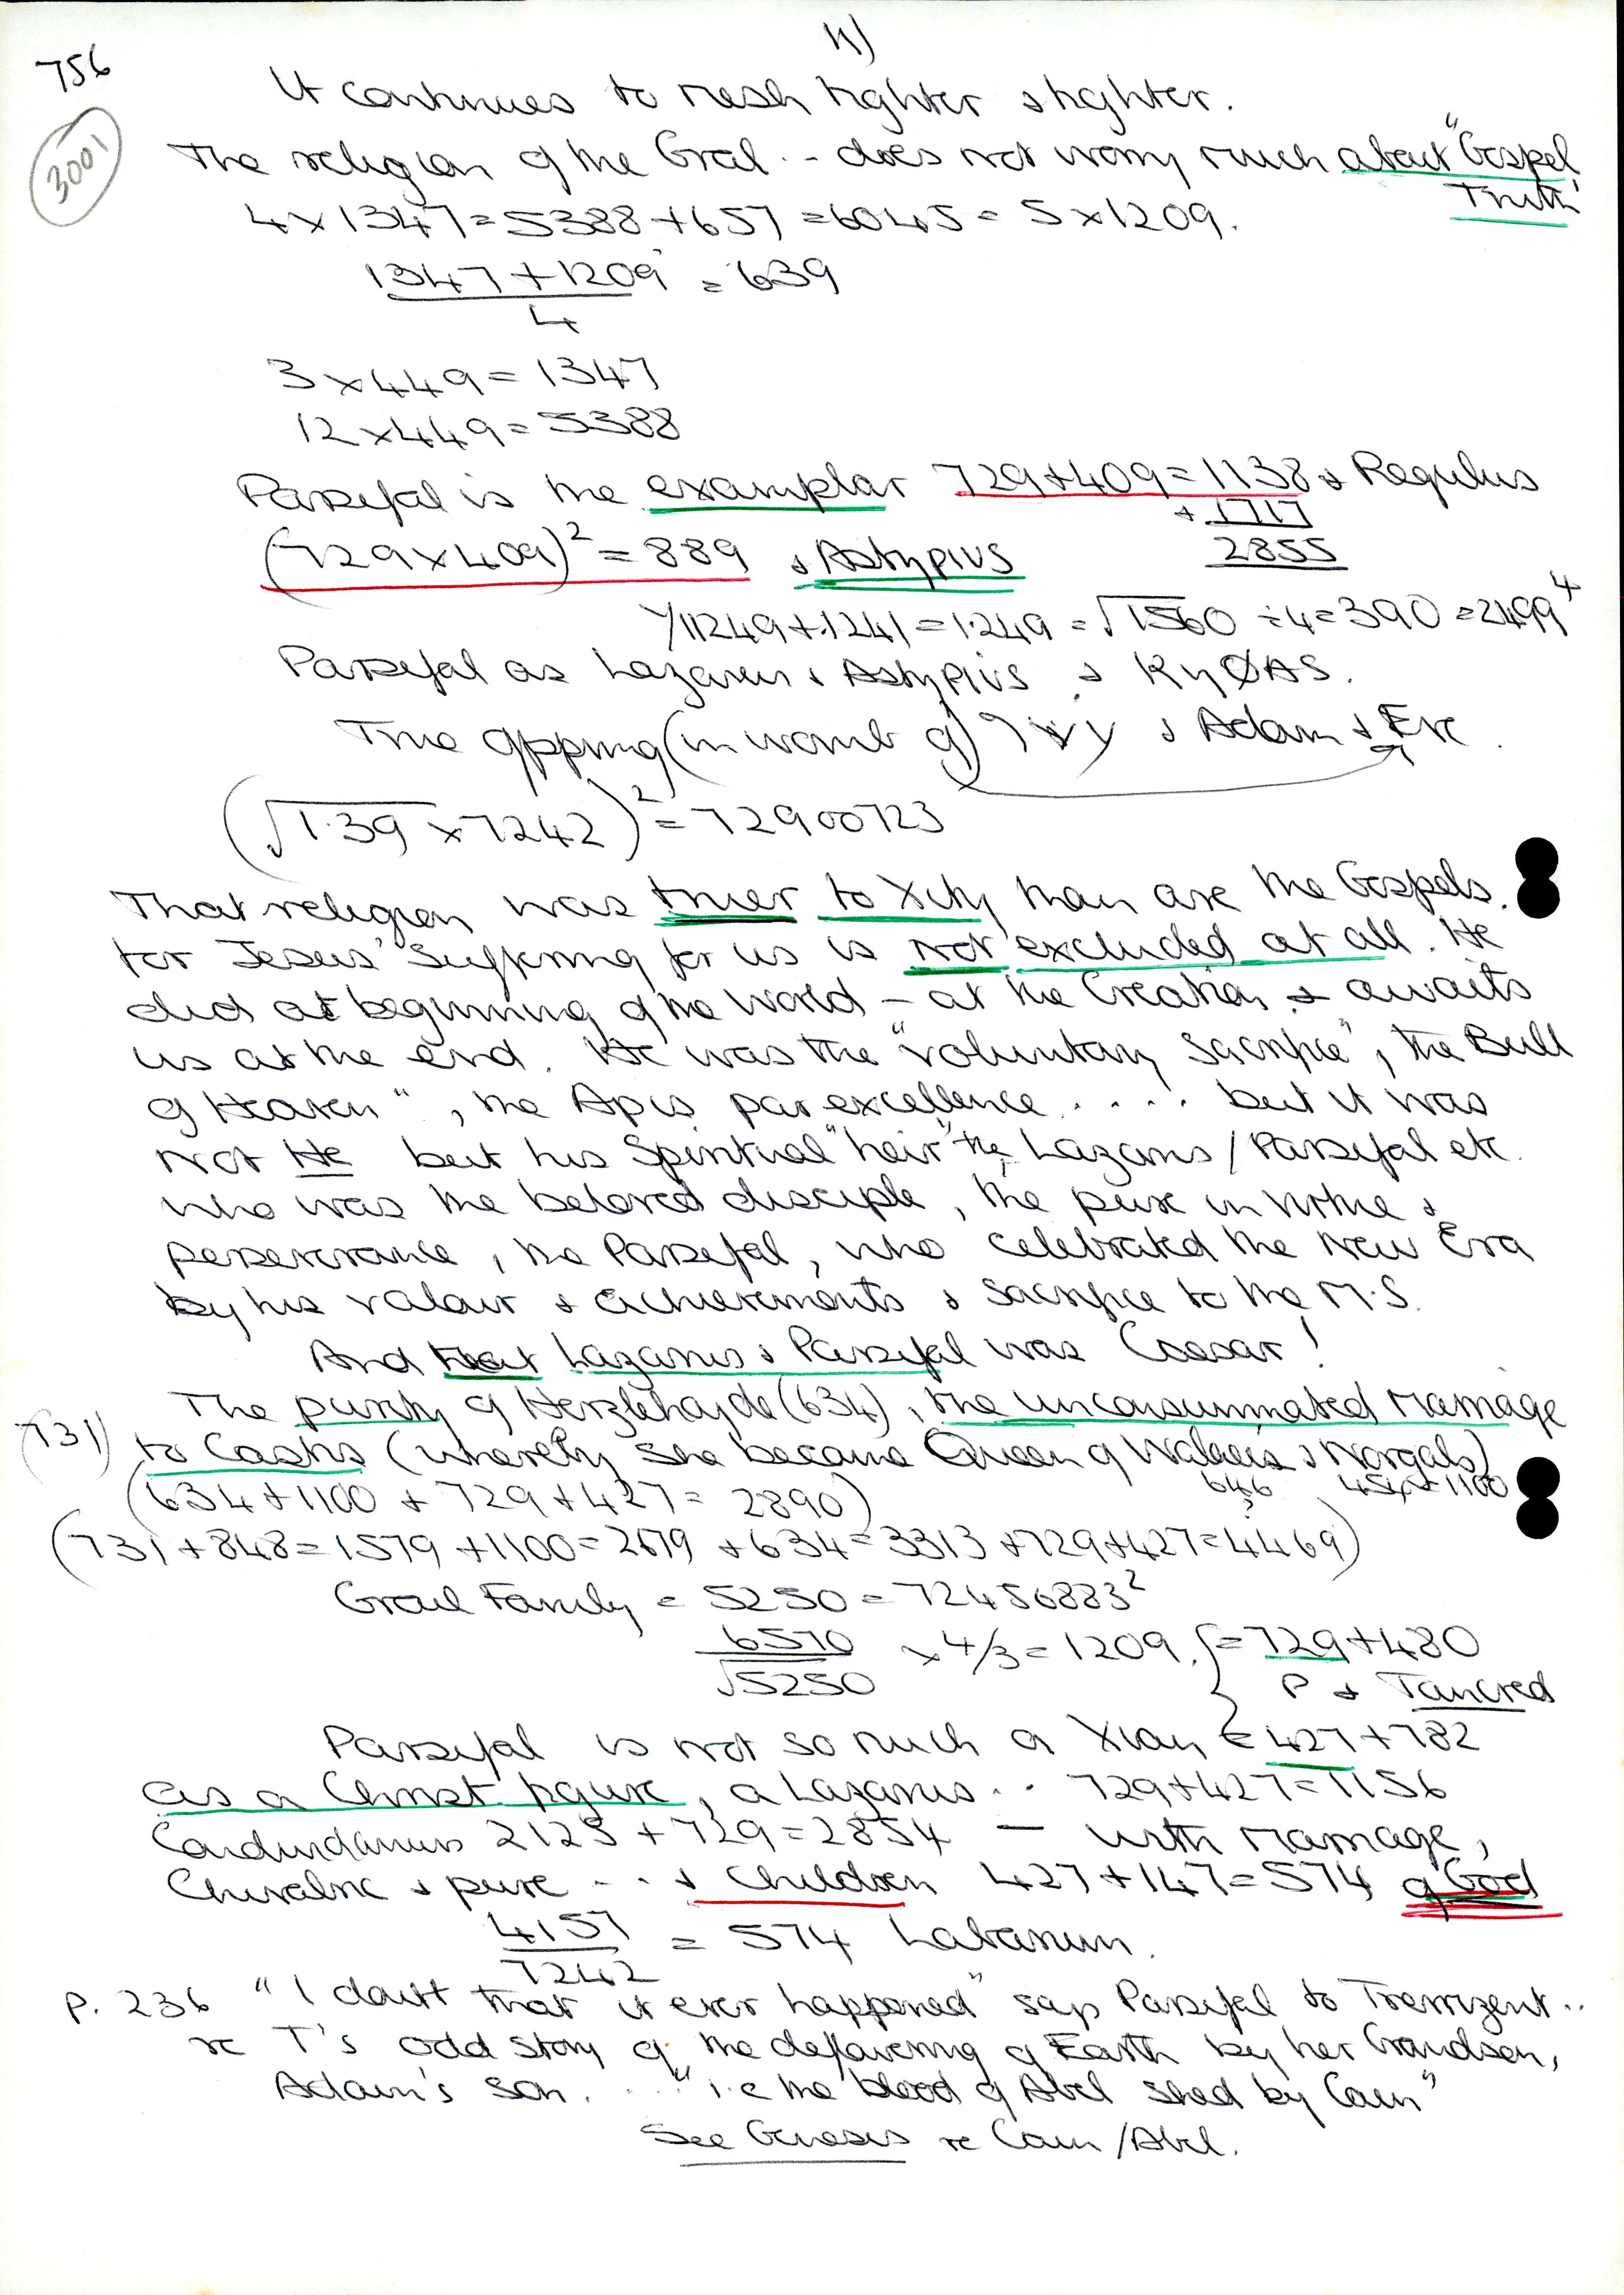 11)
756
3001
It continues to mesh tighter & tighter.
The religion of the Gral .. does not worry much about "Gospel
Truth"
4 x 1347 = 5388 + 657 = 6045 = 5 x 1209.
1347 + 1209 = 639
4
3 x 449 = 1347
12 x 449 = 5388
Parsifal is the examplar 729 + 409 = 1138 & Regulus
+ 1717
(729 x 409)² = 889 & Astypius 2855
11249 + .1241 = 1.249 = √1560 ÷ 4 = 390 = 2499⁴
Parsifal as Lazarus & Astypius & KYØAS.
True (in womb of) & Adam & Eve.
(√1.39 x 7242)² = 72900723
That religion was truer to Xity than are the Gospels.
for Jesus' suffering for us is not excluded at all. He
died at beginning of the World – at the Creation & awaits
us at the end. He was the "voluntary sacrifice", the Bull
of Heaven", the Apis par excellence .... but it was
not He but his Spiritual "heir" the Lazarus / Parsifal etc.
who was the beloved disciple, the pure in virtue &
perseverance, the Parsifal, who celebrated the New Era
by his valour & achievements & sacrifice to the M.S.
And that Lazarus & Parsifal was Caesar!
The purity of Herzlehoyde (634), the unconsummated marriage
731) to Castis (whereby she became Queen of Waleis & Norgals)
646 454 + 1100
(634 + 1100 + 729 + 427 = 2890)
(731 + 848 = 1579 + 1100 = 2679 + 634 = 3313 + 729 + 427 = 4469)
Grail Family = 5250 = 72456883²
6570 x 4/3 = 1209. = 729 + 480
√5250 P & Tancred
Parsifal is not so much a Xian = 427 + 782
as a Christ figure, a Lazarus .. 729 + 427 = 1156
Cardurdanus 2125 + 729 = 2854 – with marriage,
Chivalric & pure ... & Children 427 + 147 = 574 of God
4157 = 574 Labarum.
7242
P. 236 "I doubt that it ever happened" says Parsifal to Trevrizent ..
re T's odd story of the deflowering of Earth by her Grandson,
Adam's son. ... "i.e the blood of Abel shed by Cain"
See Genesis re Cain / Abel.